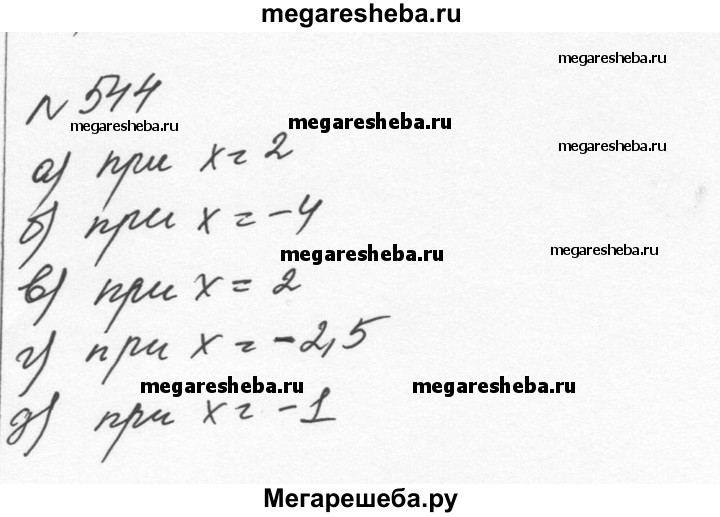 megaresheba.ru
megaresheba.ru
№ 544
megaresheba.ru
megaresheba.ru
megaresheba.ru
а) при x = 2
б) при x = -4
megaresheba.ru
megaresheba.ru
в) при x = 2
г) при x = -2,5
megaresheba.ru
megaresheba.ru
д) при x = -1
Мегарешеба.ру